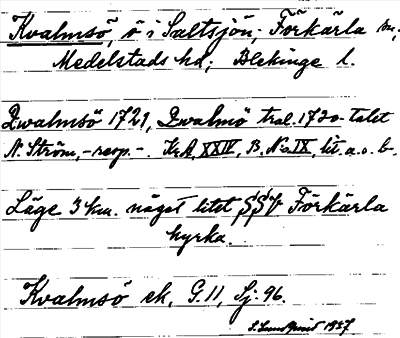 Kvalmsö, ö i Saltsjön; Förkärla sn,
Medelstads hd; Blekinge l.
Qwalmsö 1721, Qwalmö tral. 1730-talet
N. Ström, - resp. -. Kr.A. XXIV, B. No IX, lit. a. o. b.
Läge 3 km. något litet S S V Förkärla
kyrka.
Kvalmsö ek, G. 11, Sj: 96.
S. Lundqvist 1927